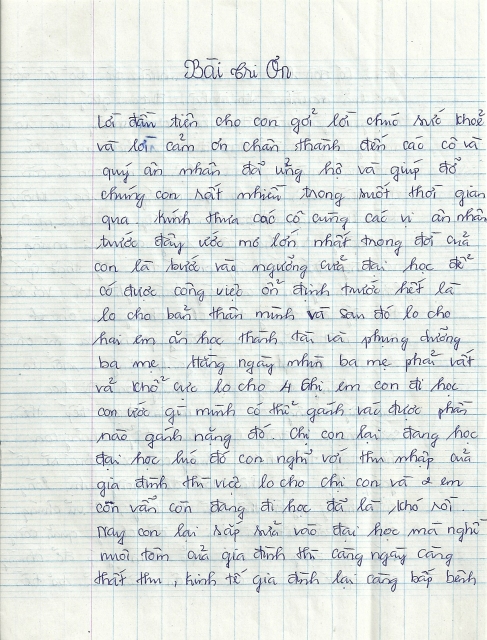 Bài tri Ơn
Lời đần tiên cho con gởi lời chúc sức khoẻ
và lời cảm ơn chân thành đến các cô và
quý ân nhân đã ủng hộ và giúp đỡ
chúng con rất nhiều trong suốt thời gian
qua. Kính thưa các cô cùng các vị ân nhân
trước đây ước mơ lớn nhất trong đời của
con là bước vào ngưỡng cửa đại học để
có được công việc ổn định trước hết là
lo cho bản thân mình và sau đó lo cho
hai em ăn học thành tài và phụng dưỡng
ba mẹ. Hằng ngày nhìn ba mẹ phải vất
vả khổ cực lo cho 4 chị em con đi học
con ước gì mình có thể gánh vác được phần
nào gánh nặng đó. Chị con lại đang học
đại học lúc đó con nghĩ với thu nhập của
gia đình thì việc lo cho chị con và 2 em
con vẫn còn đang đi học đã là khó rồi.
Nay con lại sắp sửa vào đại học mà nghề
nuôi tôm của gia đình thì càng ngày càng
thất thu, kinh tế gia đình lại càng bấp bênh